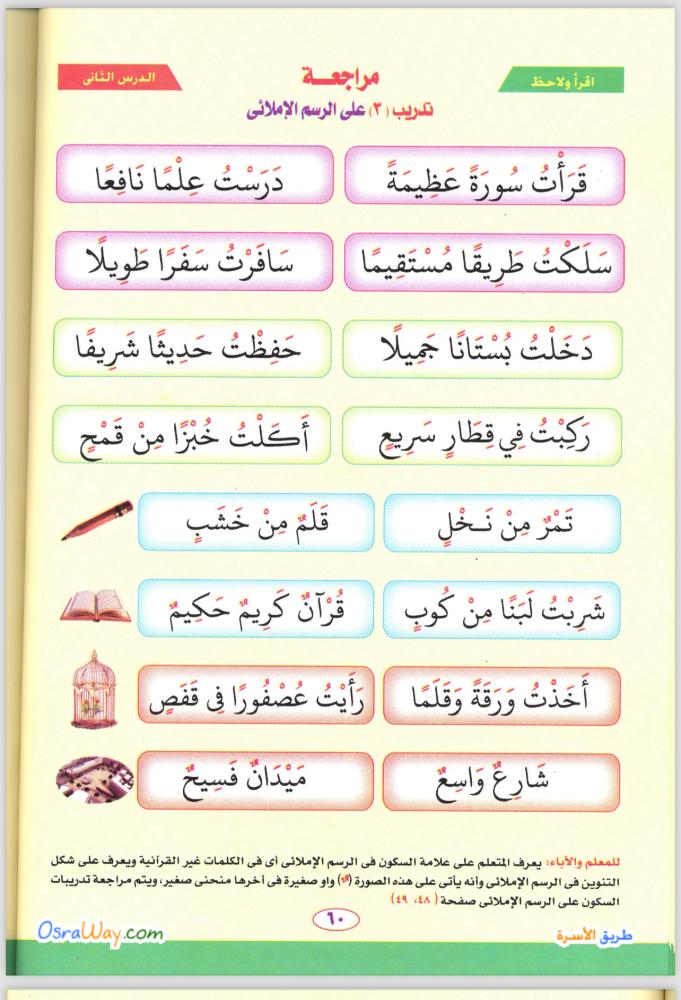 اقرأ ولاحظ
مراجعــة
الدرس الثانى
تدريب (٣) على الرسم الإملائى
قَرَأْتُ سُورَةً عَظِيمَةً
دَرَسْتُ عِلْمًا نَافِعًا
سَلَكْتُ طَرِيقًا مُسْتَقِيمًا
سَافَرْتُ سَفَرًا طَوِيلًا
دَخَلْتُ بُسْتَانًا جَمِيلًا
حَفِظْتُ حَدِيثًا شَرِيفًا
رَكِبْتُ فِي قِطَارٍ سَرِيعٍ
أَكَلْتُ خُبْزًا مِنْ قَمْحٍ
تَمْرٌ مِنْ نَـخْلٍ
قَلَمٌ مِنْ خَشَبٍ
شَرِبْتُ لَبَنًا مِنْ كُوبٍ
قُرْآنٌ كَرِيمٌ حَكِيمٌ
أَخَذْتُ وَرَقَةً وَقَلَمًا
رَأَيْتُ عُصْفُورًا فِى قَفَصٍ
شَارِعٌ وَاسِعٌ
مَيْدَانٌ فَسِيحٌ
للمعلم والآباء: يعرف المتعلم على علامة السكون فى الرسم الإملائى أى فى الكلمات غير القرآنية ويعرف على شكل
التنوين فى الرسم الإملائى وأنه يأتى على هذه الصورة (ـٌ) واو صغيرة فى أخرها منحنى صغير، ويتم مراجعة تدريبات
السكون على الرسم الإملائى صفحة (٤٨، ٤٩)
٦٠
طريق الأسرة
OsraWay.com